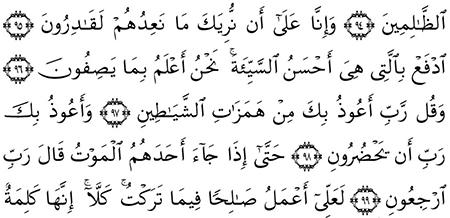 ٱلظَّـٰلِمِينَ ﴿٩٤﴾ وَإِنَّا عَلَىٰٓ أَن نُّرِيَكَ مَا نَعِدُهُمْ لَقَـٰدِرُونَ ﴿٩٥﴾
ٱدْفَعْ بِٱلَّتِى هِىَ أَحْسَنُ ٱلسَّيِّئَةَ ۚ نَحْنُ أَعْلَمُ بِمَا يَصِفُونَ ﴿٩٦﴾
وَقُل رَّبِّ أَعُوذُ بِكَ مِنْ هَمَزَٰتِ ٱلشَّيَـٰطِينِ ﴿٩٧﴾ وَأَعُوذُ بِكَ
رَبِّ أَن يَحْضُرُونِ ﴿٩٨﴾ حَتَّىٰٓ إِذَا جَآءَ أَحَدَهُمُ ٱلْمَوْتُ قَالَ رَبِّ
ٱرْجِعُونِ ﴿٩٩﴾ لَعَلِّىٓ أَعْمَلُ صَـٰلِحًا فِيمَا تَرَكْتُ ۚ كَلَّآ ۚ إِنَّهَا كَلِمَةٌ